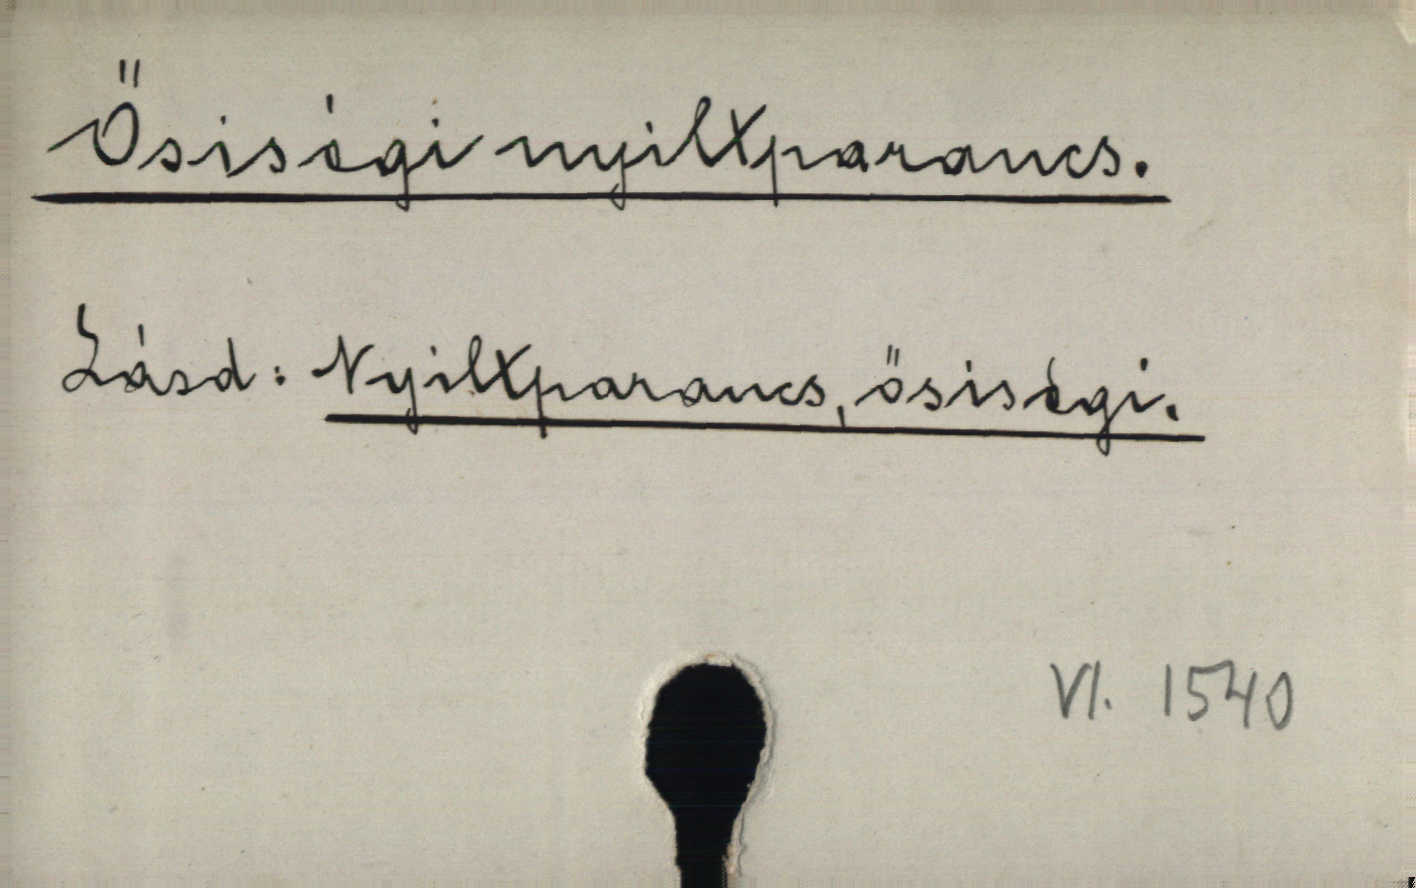 Ősiségi nyiltparancs.
Lásd: Nyiltparancs, ősiségi.
VI. 1540